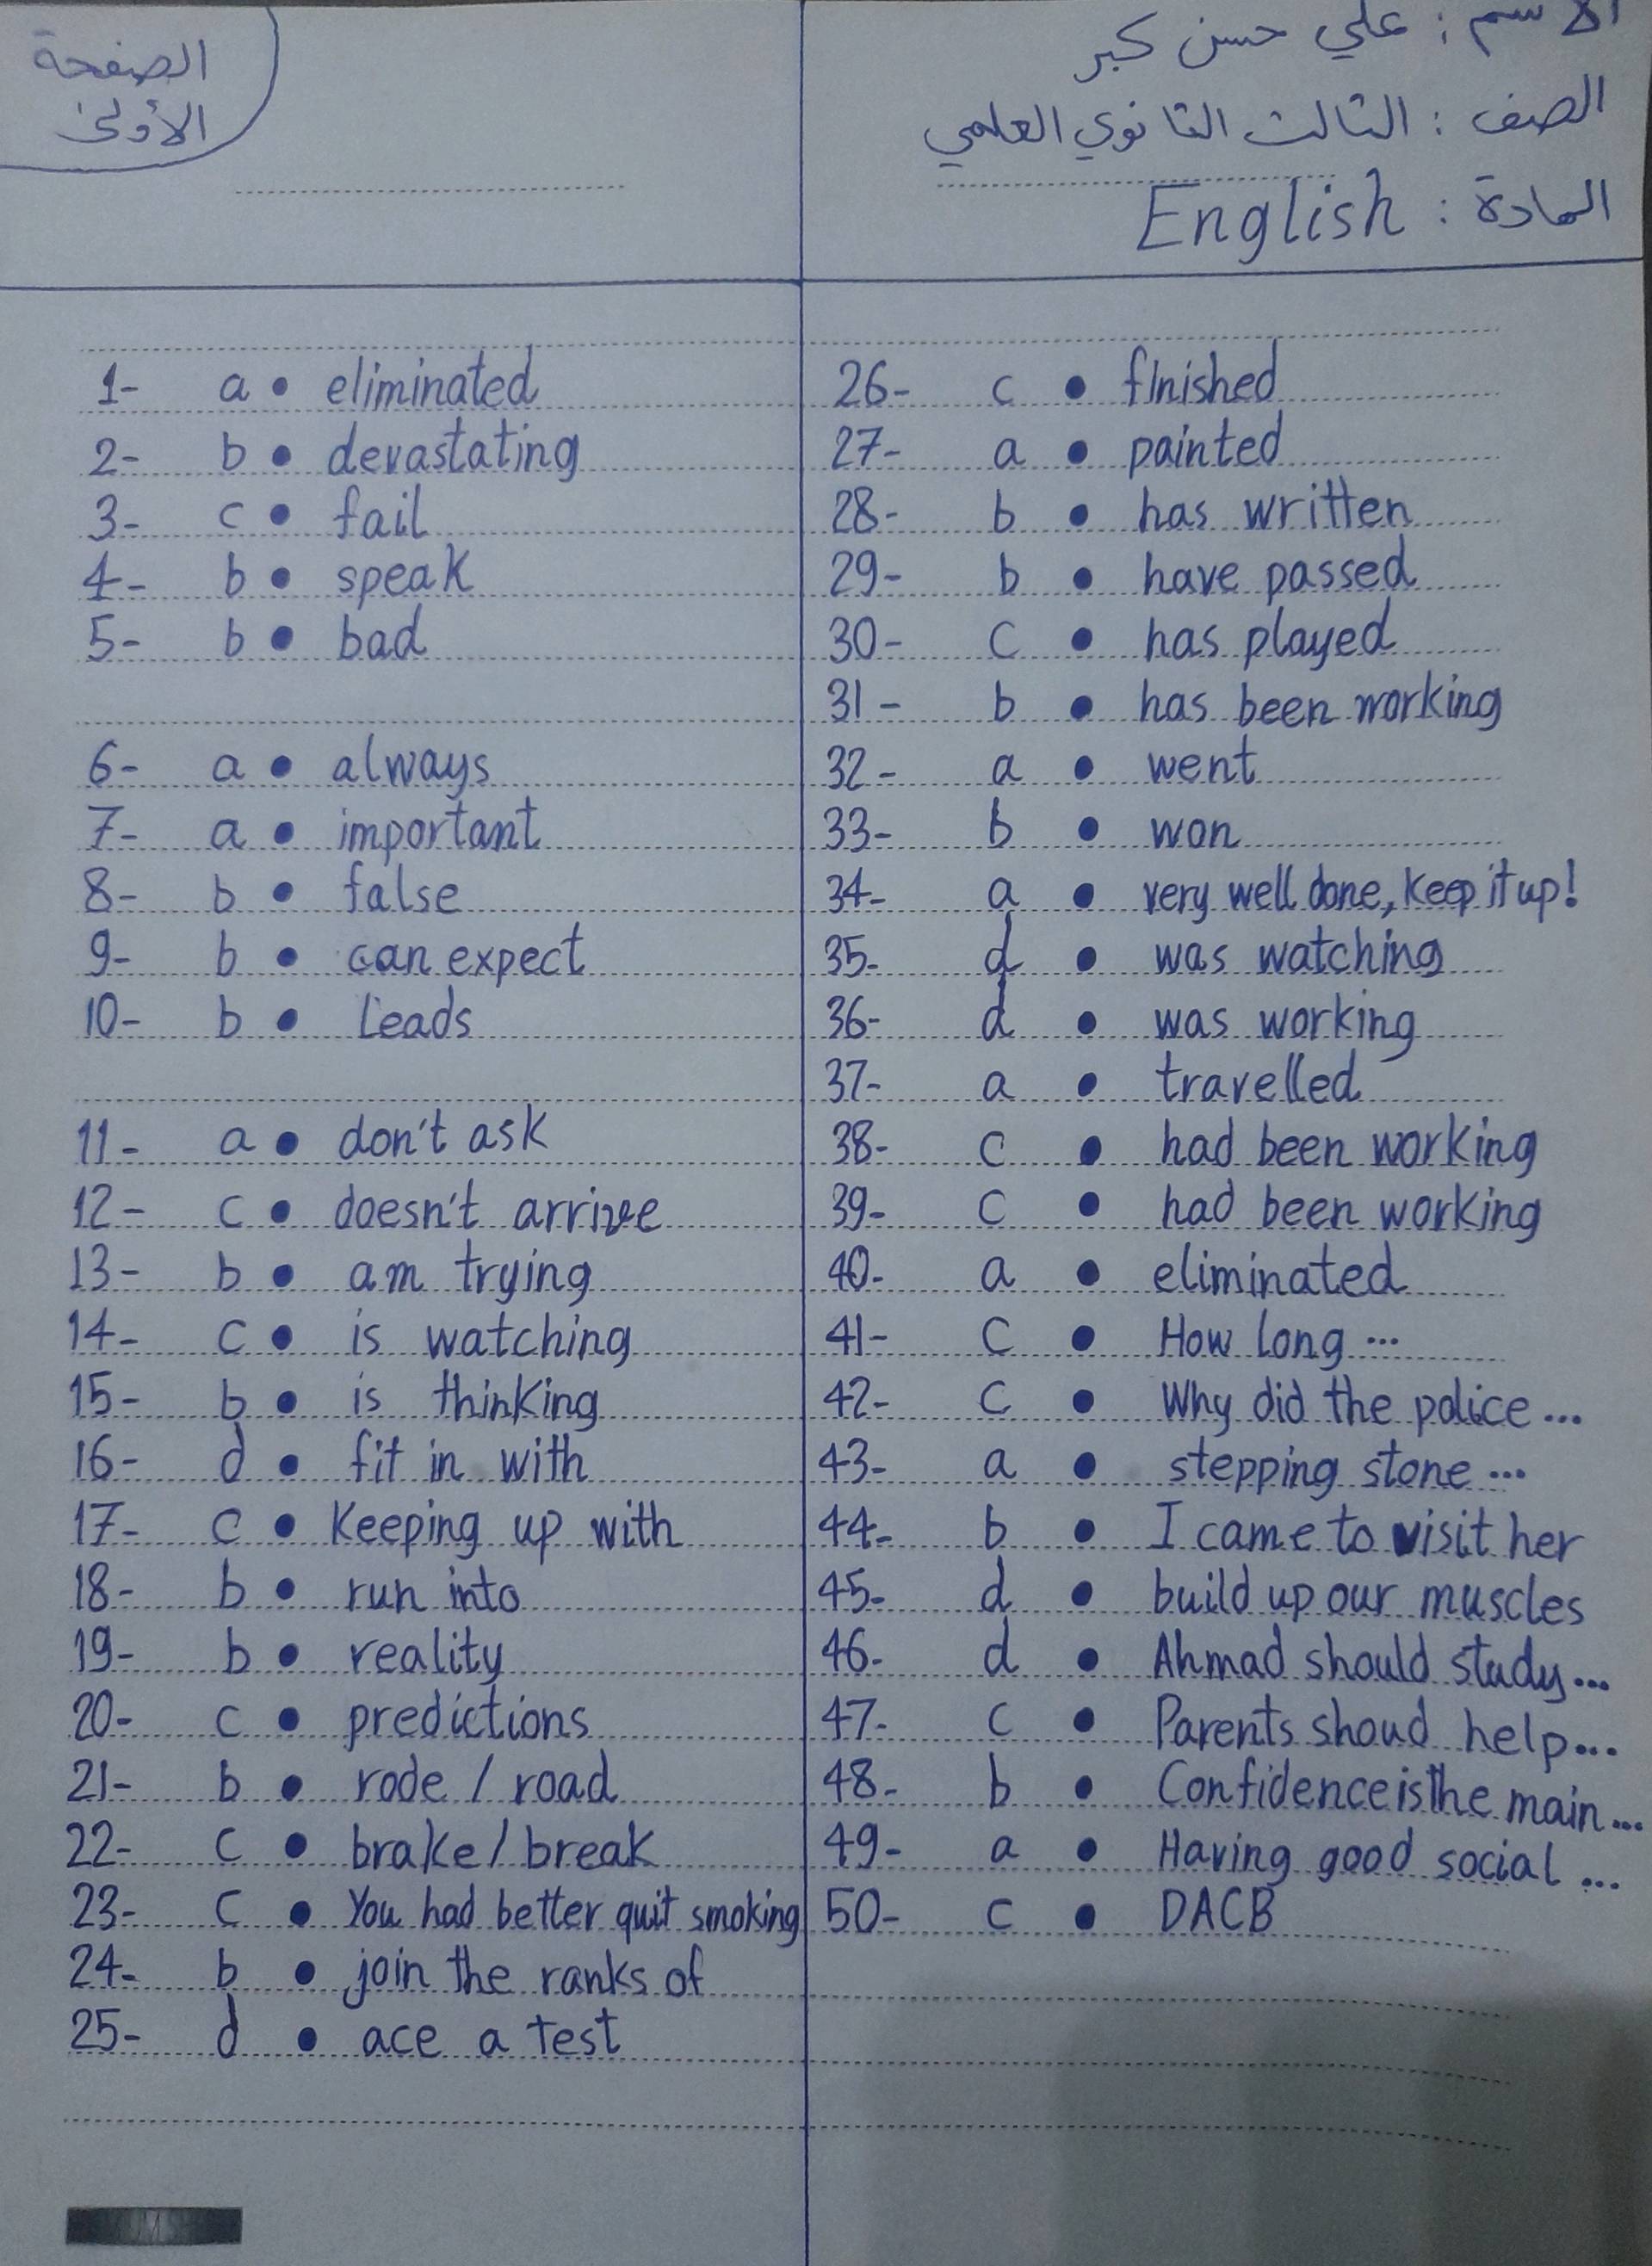 الاسم : علي حسن كبر
الصف : الثالث الثانوي العلمي
المادة : English
الصفحة
الأولى
1- a • eliminated
2- b • devastating
3- c • fail
4- b • speak
5- b • bad
6- a • always
7- a • important
8- b • false
9- b • can expect
10- b • Leads
11- a • don't ask
12- c • doesn't arrive
13- b • am trying
14- c • is watching
15- b • is thinking
16- d • fit in with
17- c • Keeping up with
18- b • run into
19- b • reality
20- c • predictions
21- b • rode / road
22- c • brake / break
23- c • You had better quit smoking
24- b • join the ranks of
25- d • ace a test
26- c • finished
27- a • painted
28- b • has written
29- b • have passed
30- c • has played
31- b • has been working
32- a • went
33- b • won
34- a • very well done, Keep it up!
35- d • was watching
36- d • was working
37- a • travelled
38- c • had been working
39- c • had been working
40- a • eliminated
41- c • How long ...
42- c • Why did the police ...
43- a • stepping stone ...
44- b • I came to visit her
45- d • build up our muscles
46- d • Ahmad should study ...
47- c • Parents shoud help ...
48- b • Confidence is the main ...
49- a • Having good social ...
50- c • DACB